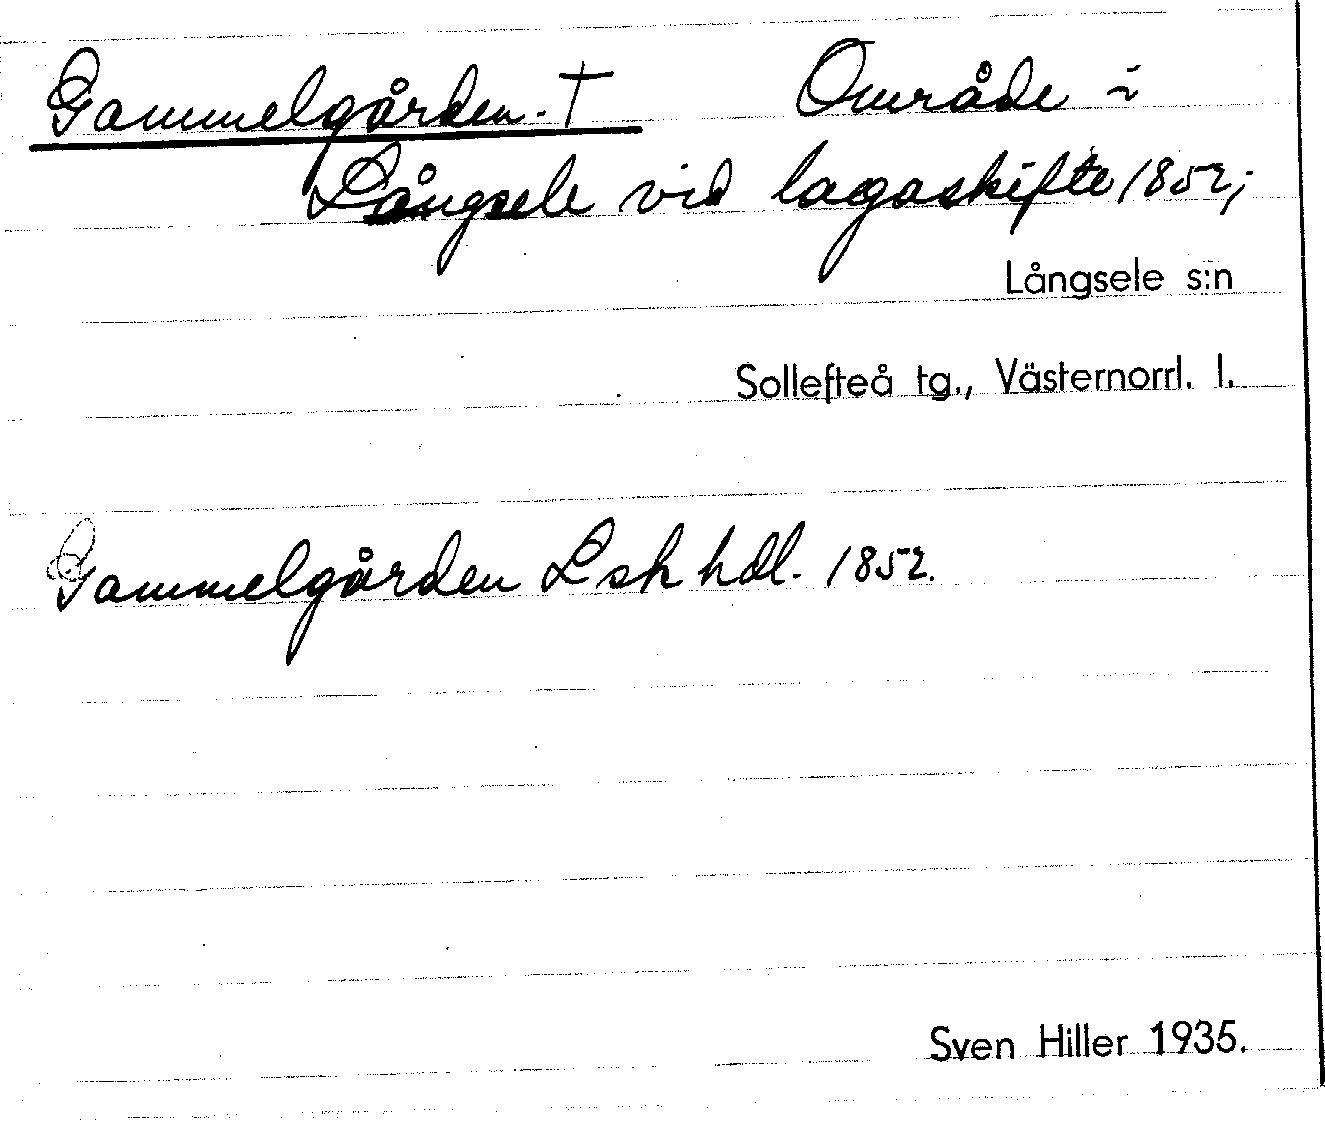 Gammelgården. † Område i
Långsele vid lagaskifte 1852;
Långsele s:n
Sollefteå tg., Västernorrl. l.
Gammelgården Lsk hdl. 1852.
Sven Hiller 1935.